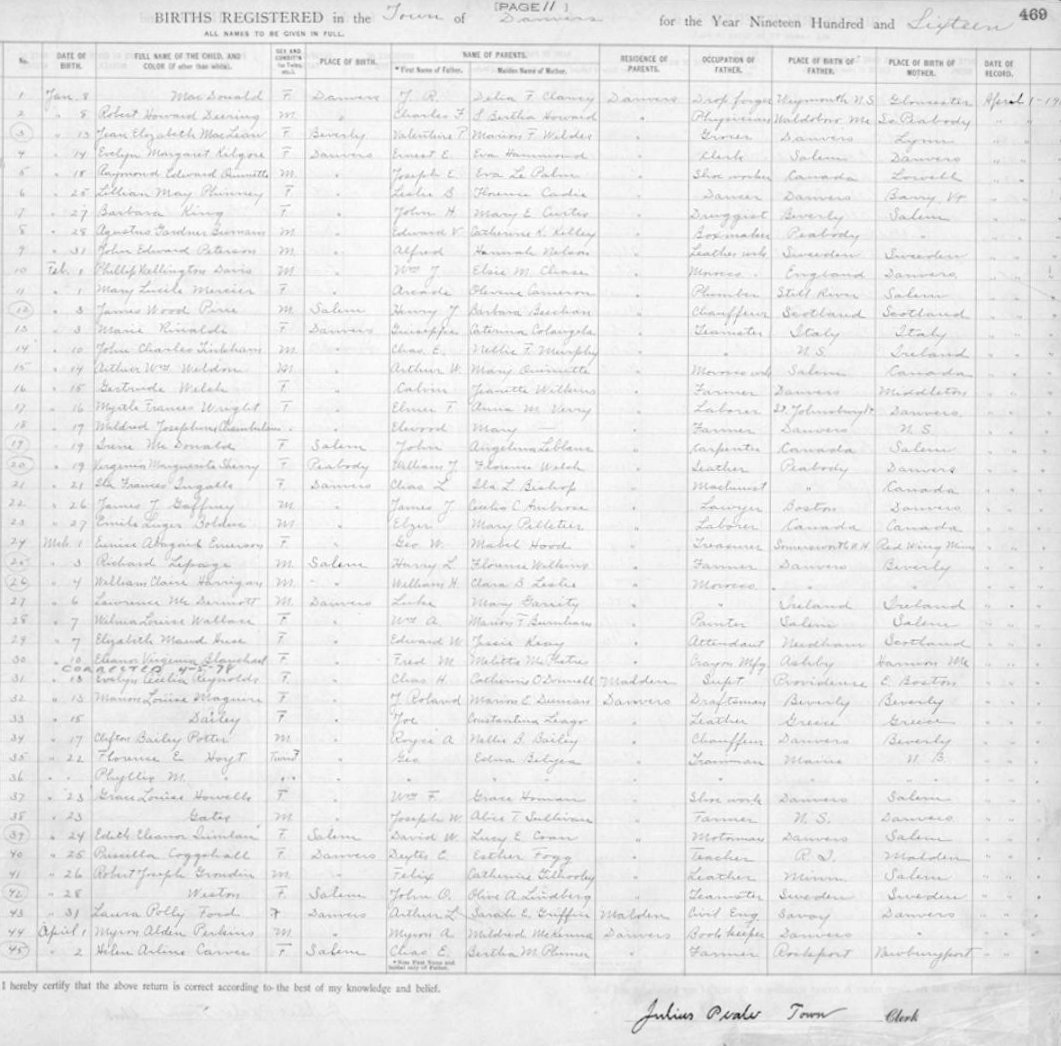 [PAGE 11]
469
BIRTHS REGISTERED in the Town of Danvers for the Year Nineteen Hundred and Sixteen
ALL NAMES TO BE GIVEN IN FULL.
No. DATE OF BIRTH. FULL NAME OF THE CHILD, AND COLOR (if other than white). SEX AND CONDIT'N (as Twins, etc.). PLACE OF BIRTH. NAME OF PARENTS. RESIDENCE OF PARENTS. OCCUPATION OF FATHER. PLACE OF BIRTH OF FATHER. PLACE OF BIRTH OF MOTHER. DATE OF RECORD.
* First Name of Father. Maiden Name of Mother.
1 Jan. 8 MacDonald F Danvers J. R. Delia F. Clancy Danvers Drop forger Weymouth N.S. Gloucester April 1-19
2 " 8 Robert Howard Deering M " Charles F. S. Bertha Howard " Physician Waldoboro Me So Peabody " "
3 " 13 Jean Elizabeth MacLean F Beverly Valentine P. Marion F. Welder " Grocer Danvers Lynn " "
4 " 14 Evelyn Margaret Kilgore F Danvers Ernest E. Eva Hammond " Clerk Salem Danvers " "
5 " 18 Raymond Edward Ouimette M " Joseph E. Eva La Palm " Shoe worker Canada Lowell " "
6 " 25 Lillian May Phinney F " Leslie B Florence Cadie " Dancer Danvers Barry Vt " "
7 " 27 Barbara King F " John H. Mary E. Curtis " Druggist Beverly Salem " "
8 " 28 Agustus Gardner M " Edward V. Catherine K. Kelley " Boxmaker Peabody " " "
9 " 31 John Edward Peterson M " Alfred Hannah Nelson " Leather wk Sweeden Sweeden " "
10 Feb. 1 Phillip Kellington Davis M " Wm J. Elsie M. Chase " Morocco " England Danvers " "
11 " 1 Mary Lucile Mercier F " Arcade Cameron " Plumber Still River Salem " "
12 " 3 James Wood Pirie M Salem Henry J. Barbara " Chauffeur Scotland Scotland " "
13 " 3 Marie Rinaldi F Danvers Guiseppie Caterina Colangelo " Teamster Italy Italy " "
14 " 10 John Charles Tinkham M " Chas. E. Nellie F. Murphy " " N.S. Ireland " "
15 " 14 Arthur Wm Weldon M " Arthur W. Mary Ouimette " Morocco wk Salem Canada " "
16 " 15 Gertrude Welch F " Calvin Jeanette Wilkins " Farmer Danvers Middleton " "
17 " 16 Myrtle Frances Wright F " Elmer F. Anna M. Verry " Laborer St. Johnsbury Vt Danvers " "
18 " 19 Mildred Josephine Chamberlain " " Elwood Mary — " Farmer Danvers N.S. " "
19 " 19 Irene McDonald F Salem John Angelina Leblanc " Carpenter Canada Salem " "
20 " 19 Virginia Marguerite Sherry F Peabody William J. Florence Welch " Leather Peabody Danvers " "
21 " 21 Ila Frances Ingalls F Danvers Chas L. Ila L. Bishop " Machinist " Canada " "
22 " 26 James J. Gaffney M " James J. Cecilia C. Ambrose " Lawyer Boston Danvers " "
23 " 27 Emile Luger Bolduc M " Elzer Mary Pelletier " Laborer Canada Canada " "
24 Mch. 1 Eunice Abagail Emerson F " Geo W. Mabel Hood " Treasurer Somersworth N.H Red Wing Minn " "
25 " 3 Richard Lepage M Salem Harry L. Florence Wilkins " Farmer Danvers Beverly " "
26 " 4 William Claire Harrigan M " William H. Clara B. Leslie " Morocco " " " "
27 " 6 Lawrence McDermott M Danvers Luke Mary Garrity " " Ireland Ireland " "
28 " 7 Wilma Louise Wallace F " Wm A. Marion F. Burnham " Painter Salem Salem " "
29 " 7 Elizabeth Maud Huse F " Edward W. Jessie Keay " Attendant Needham Scotland " "
30 " 10 Eleanor Virginia Blanchard F " Fred M. Melitta McPhetres " Crayon Mfg Ashby Harmon Me " "
CORRECTED 4-5-78
31 " 13 Evelyn Cecelia Reynolds F " Chas H. Catherine O'Donnell Malden " Supt Providence E. Boston " "
32 " 13 Marion Louise Maguire F " J. Roland Marion E. Duncan Danvers Draftsman Beverly Beverly " "
33 " 15 Dailey F " Joe Constantina Leago " Leather Greece Greece " "
34 " 17 Clifton Bailey Potter M " Royce A. Nellie B. Bailey " Chauffeur Danvers Beverly " "
35 " 22 Florence E. Hoyt Twins F " Geo Edna " Trainman Maine N B. " "
36 " " Phyllis M. " " " " " " " " " " "
37 " 23 Grace Louise Howells F " Wm F. Grace Homan " Shoe work Danvers Salem " "
38 " 23 Gates M " Joseph W. Alice T. Sullivan " Farmer N.S. Danvers " "
39 " 24 Edith Eleanor Quinlan F Salem David W. Lucy E. Coan " Motorman Danvers Salem " "
40 " 25 Priscilla Coggshall F Danvers Dexter C. Esther Fogg " Teacher R.I. Malden " "
41 " 26 Robert Joseph Groudin M " Felix Catherine Gilhooley " Leather Minn Salem " "
42 " 28 Weston F Salem John O. Olive A. Lindberg " Teamster Sweden Sweden " "
43 " 31 Laura Polly Ford F Danvers Arthur L. Sarah E. Griffin Malden Civil Eng Savoy Danvers " "
44 April 1 Myron Alden Perkins M " Myron A. Mildred McKenna Danvers Book keeper Danvers " " "
45 " 2 Helen Arline Carver F Salem Chas E. Bertha M. Plumer " Farmer Rockport Newburyport " "
* Note First Name and Initial only of Father.
I hereby certify that the above return is correct according to the best of my knowledge and belief.
Julius Peale Town Clerk